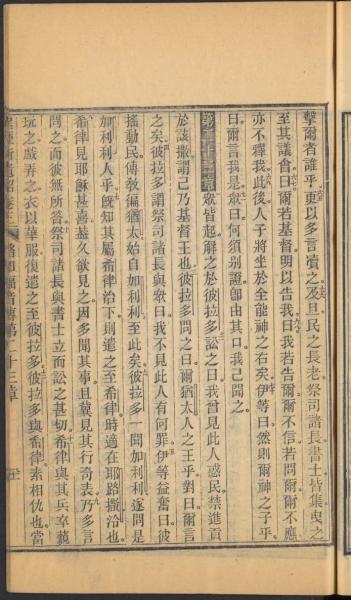 擊爾者誰乎更以多言凟之及旦民之長老祭司諸長書士皆集曳之
至其議會曰爾若基督明以告我曰我若告爾爾不信若問爾爾不應
亦不釋我此後人子將坐於全能神之右矣伊等曰然則爾神之子乎
曰爾言我是眾曰何須別證卽由其口我已聞之
第二十三章眾皆起解之於彼拉多訟之曰我曾見此人惑民禁進貢
於該撒謂己乃基督王也彼拉多問之曰爾猶太人之王乎對曰爾言
之矣彼拉多謂祭司諸長與眾曰我不見此人有何罪伊等益奮曰彼
搖動民傳教徧猶太始自加利利至此矣彼拉多一聞加利利遂問是
加利利人乎旣知其屬希律治下則遣之至希律時適在耶路撒冷也
希律見耶穌甚喜蓋久欲見之因多聞其事且冀見其行奇表乃多言
問之而彼無所答祭司諸長與書士立而訟之甚切希律與其兵卒藐
玩之戲弄之衣以華服復遣之至彼拉多彼拉多與希律素相仇也當
路加福音傳第二十三章